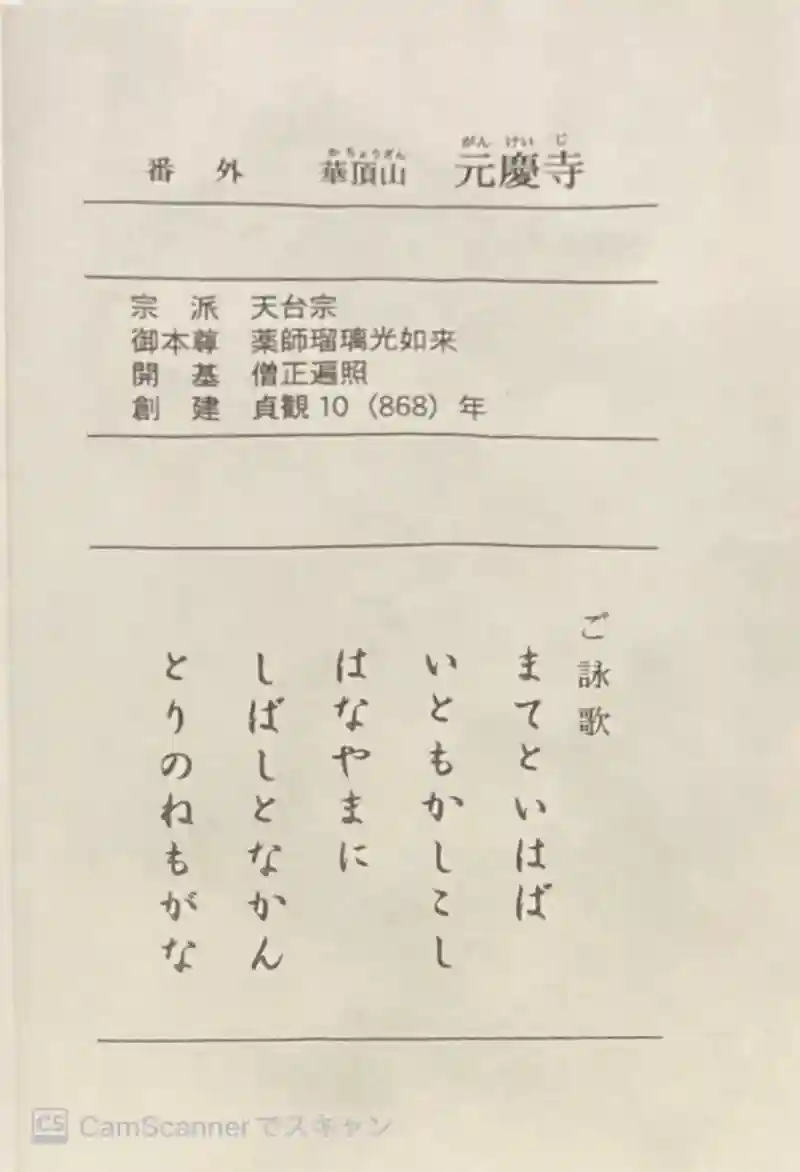 番外 華頂山 元慶寺
かちょうざん がんけいじ
宗派 天台宗
御本尊 薬師瑠璃光如来
開基 僧正遍照
創建 貞観10（868）年
ご詠歌
まてといはば
いともかしこし
はなやまに
しばしとなかん
とりのねもがな
CS CamScannerでスキャン